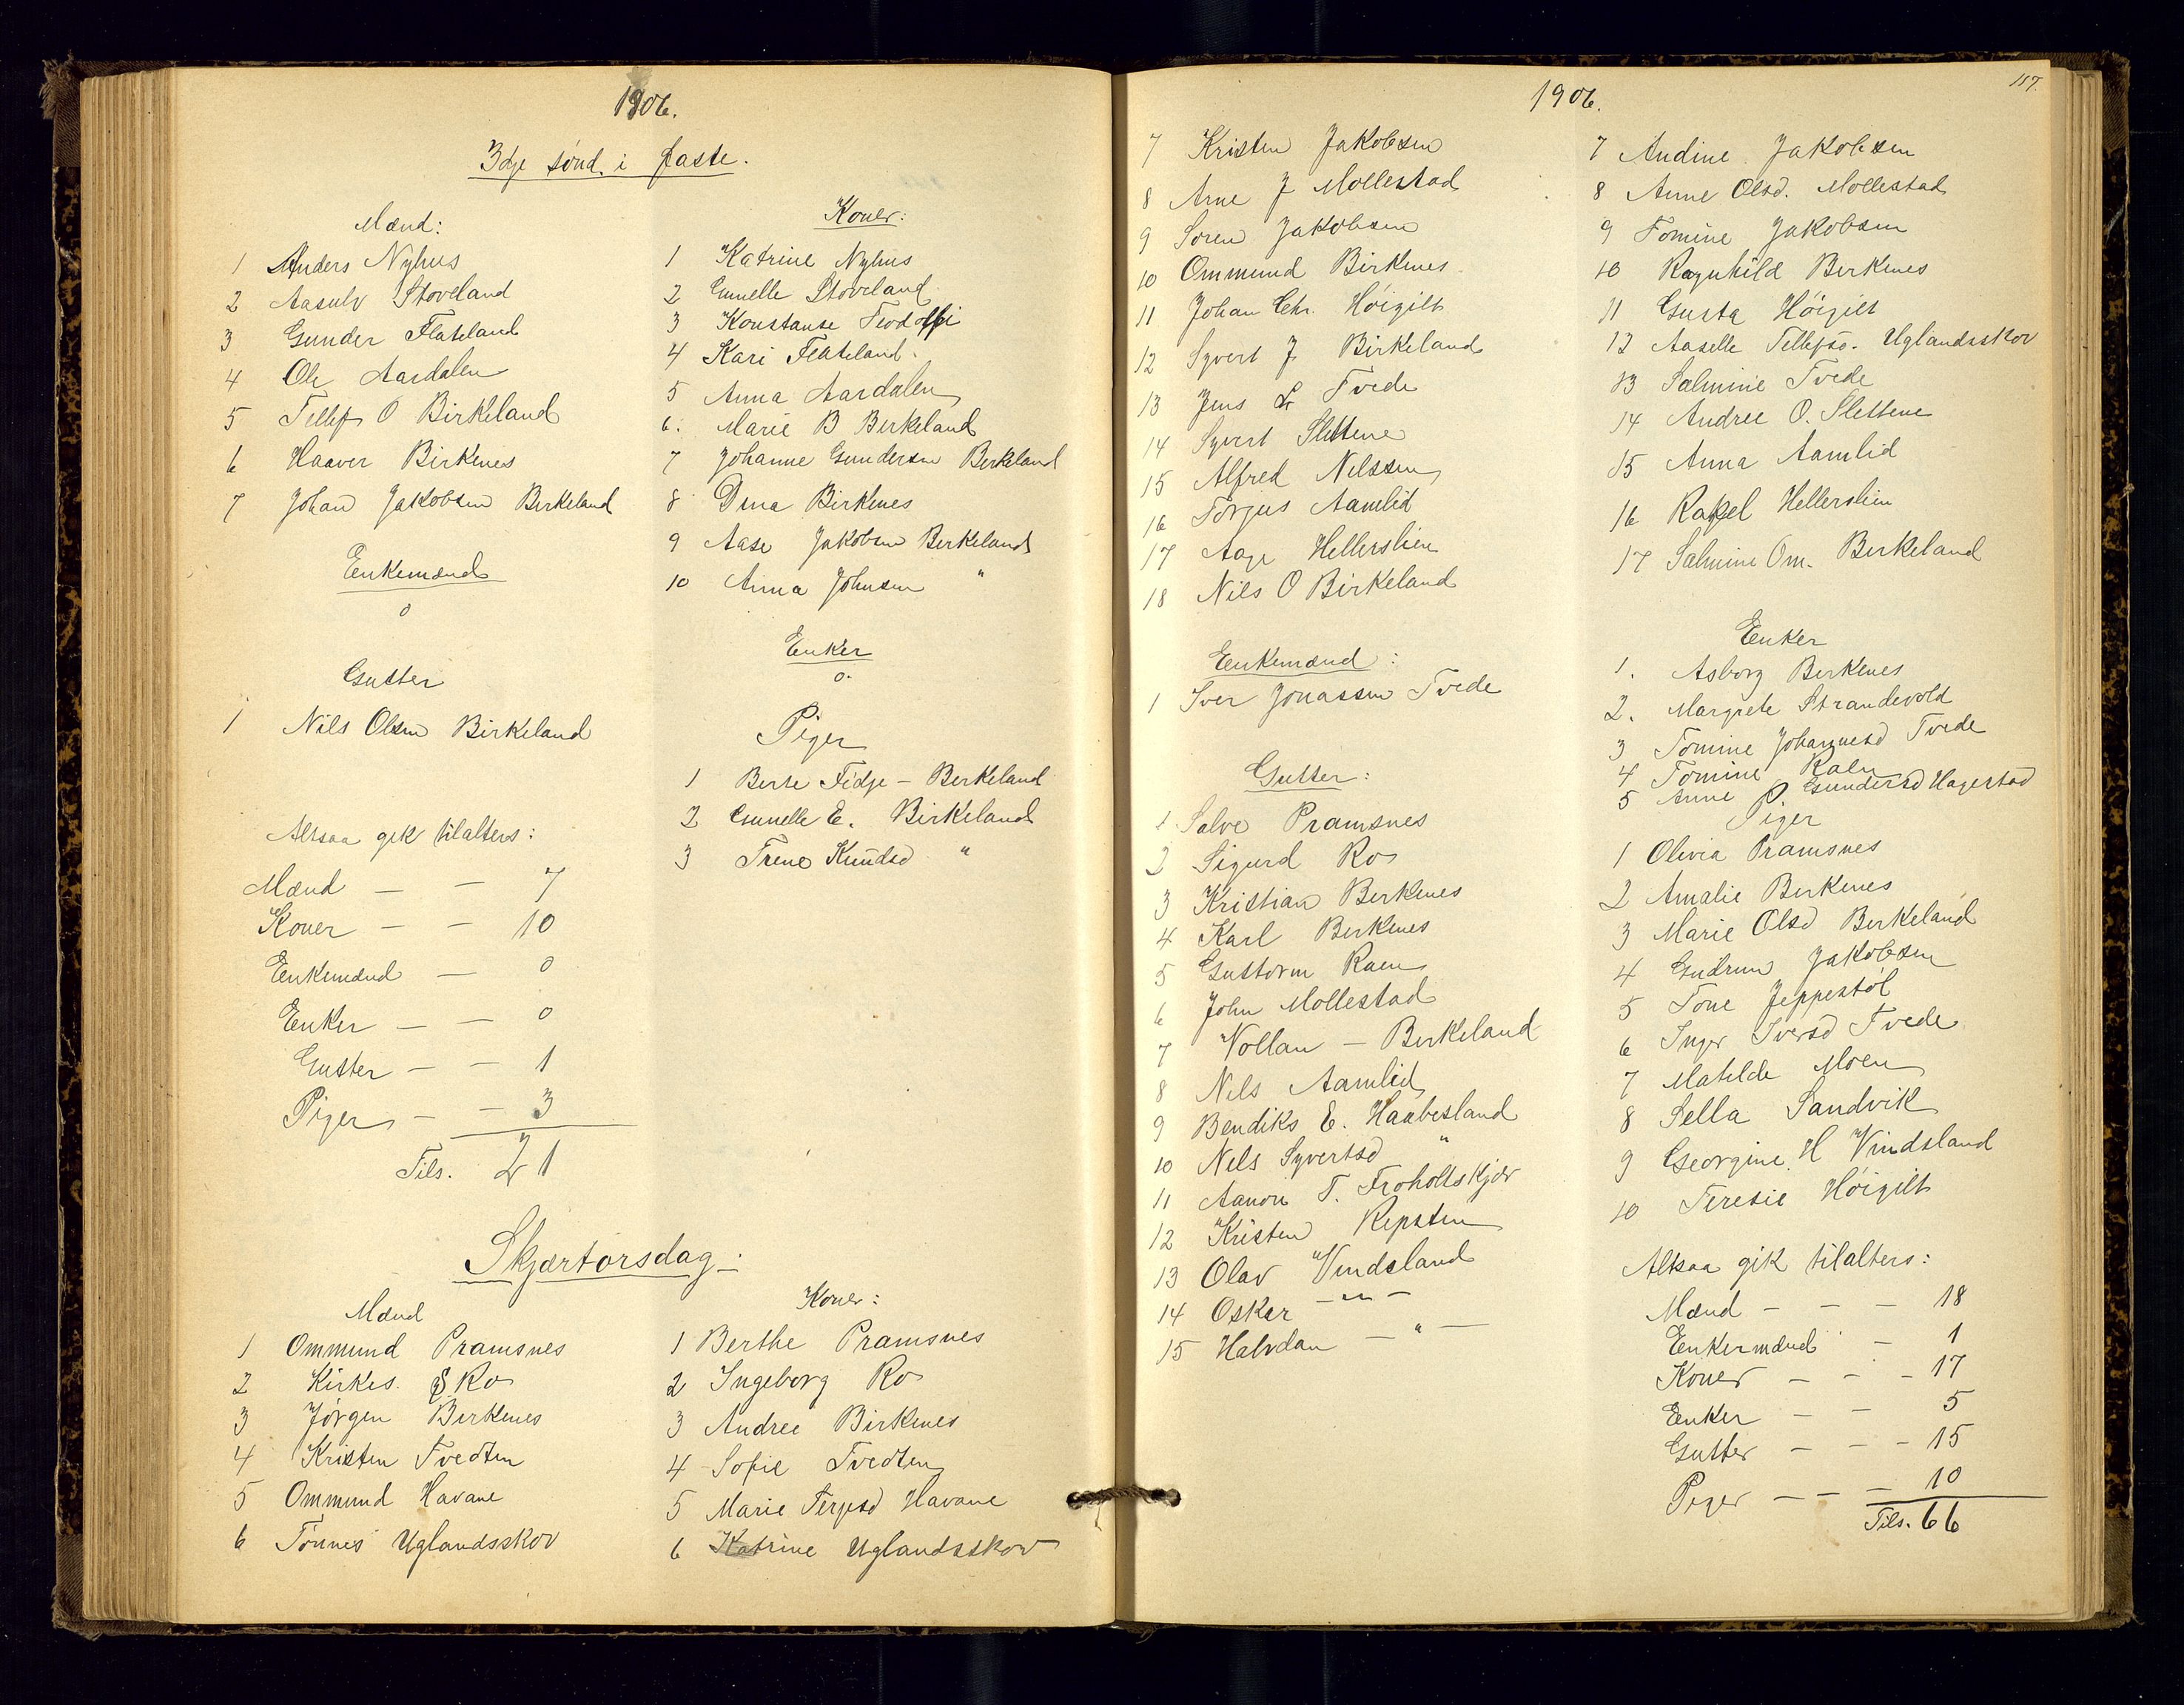 1906.
3dje sønd. i faste.
Mænd:
1 Anders Nyhus
2 Aasulv Stoveland
3 Gunder Flateland
4 Ole Aardalen
5 Tellef O Birkeland
6 Haaver Birkenes
7 Johan Jakobsen Berkeland
Enkemænd
0
Gutter
1 Nils Olsen Birkeland
Altsaa gik tilalters:
Mænd — — 7
Koner — — 10
Enkemænd — 0
Enker — — 0
Gutter — — 1
Piger — — 3
Tils. 21
Koner:
1 Katrine Nyhus
2 Gunelle Stoveland
3 Konstanse
4 Kari Flateland.
5 Anna Aardalen
6. Marie B Berkeland
7 Johanne Gundersen Berkeland
8 Dina Birkenes
9 Aase Jakobsen Berkeland
10 Anna Johnsen "
Enker
0.
Piger
1 Berte Fidje – Berkeland
2 Gunelle E. Birkeland
3 Trine Knudsd "
Skjærtorsdag:
Mænd
1 Ommund Pramsnes
2 Kirkes. S Ro
3 Jørgen Berkenes
4 Kristen Tvedten
5 Ommund Havane
6 Tønnes Uglandsskov
Koner:
1 Berthe Pramsnes
2 Ingeborg Ro
3 Andree Birkenes
4 Sofie Tvedten
5 Marie Terjesd Havane
6 Katrine Uglandsskov
117.
1906.
7 Kristen Jakobsen
8 Arne J Mollestad
9 Søren Jakobsen
10 Ommund Birkenes
11 Johan Chr. Høigilt
12 Syvert J. Birkeland
13 Jens L Tvede
14 Syvert Slettene
15 Alfred Nilssen
16 Torjus Aamlid
17 Aage Hellerslien
18 Nils O Birkeland
Enkemænd:
1 Iver Jonassen Tvede
Gutter:
1 Salve Pramsnes
2 Sigurd Ro
3 Kristian Berkenes
4 Karl Berkenes
5 Guttorm Raen
6 John Mollestad
7 Nollau – Berkeland
8 Nels Aamlid
9 Bendiks E. Haabesland
10 Nels Syvertsd "
11 Aanon T. Froholtskjær
12 Kristen Repsten
13 Olav Vindsland
14 Oskar — " —
15 Halvdan — " —
7 Andine Jakobsen
8 Anne Olsd. Mollestad
9 Tomine Jakobsen
10 Ragnhild Berkenes
11 Gusta Høigilt
12 Aaselle Tellefsd. Uglandsskov
13 Salmine Tvede
14 Andree O. Slettene
15 Anna Aamlid
16 Rakel Hellerslien
17 Salmine Om. Berkeland
Enker
1. Asborg Berkenes
2. Margrete Strandevold
3 Tomine Johannesd Tvede
4 Tomine Raen
5 Anne P. Gundersd Hagestad
Piger
1 Olivia Pramsnes
2 Amalie Berkenes
3 Marie Olsd Berkeland
4 Gudrun Jakobsen
5 Tone Jeppestøl
6 Inger Iversd Tvede
7 Matilde Moen
8 Sella Sandvik
9 Georgine H Vindsland
10 Teresie Høigilt
Altsaa gik tilalters:
Mænd — — — 18
Enkermænd — 1
Koner — — — 17
Enker — — 5
Gutter — — — 15
Piger — — — 10
Tils. 66